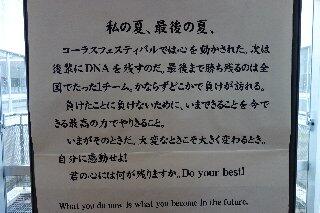 私の夏、最後の夏、
コーラスフェスティバルでは心を動かされた。次は
後輩にDNAを残すのだ。最後まで勝ち残るのは全
国でたった1チーム。かならずどこかで負けが訪れる。
負けたことに負けないために、いまできることを今で
きる最高の力でやりきること。
いまがそのときだ。大変なときこそ大きく変わるとき。
自分に感動せよ!
君の心には何が残りますか。Do your best!
What you do now is what you become in the future.